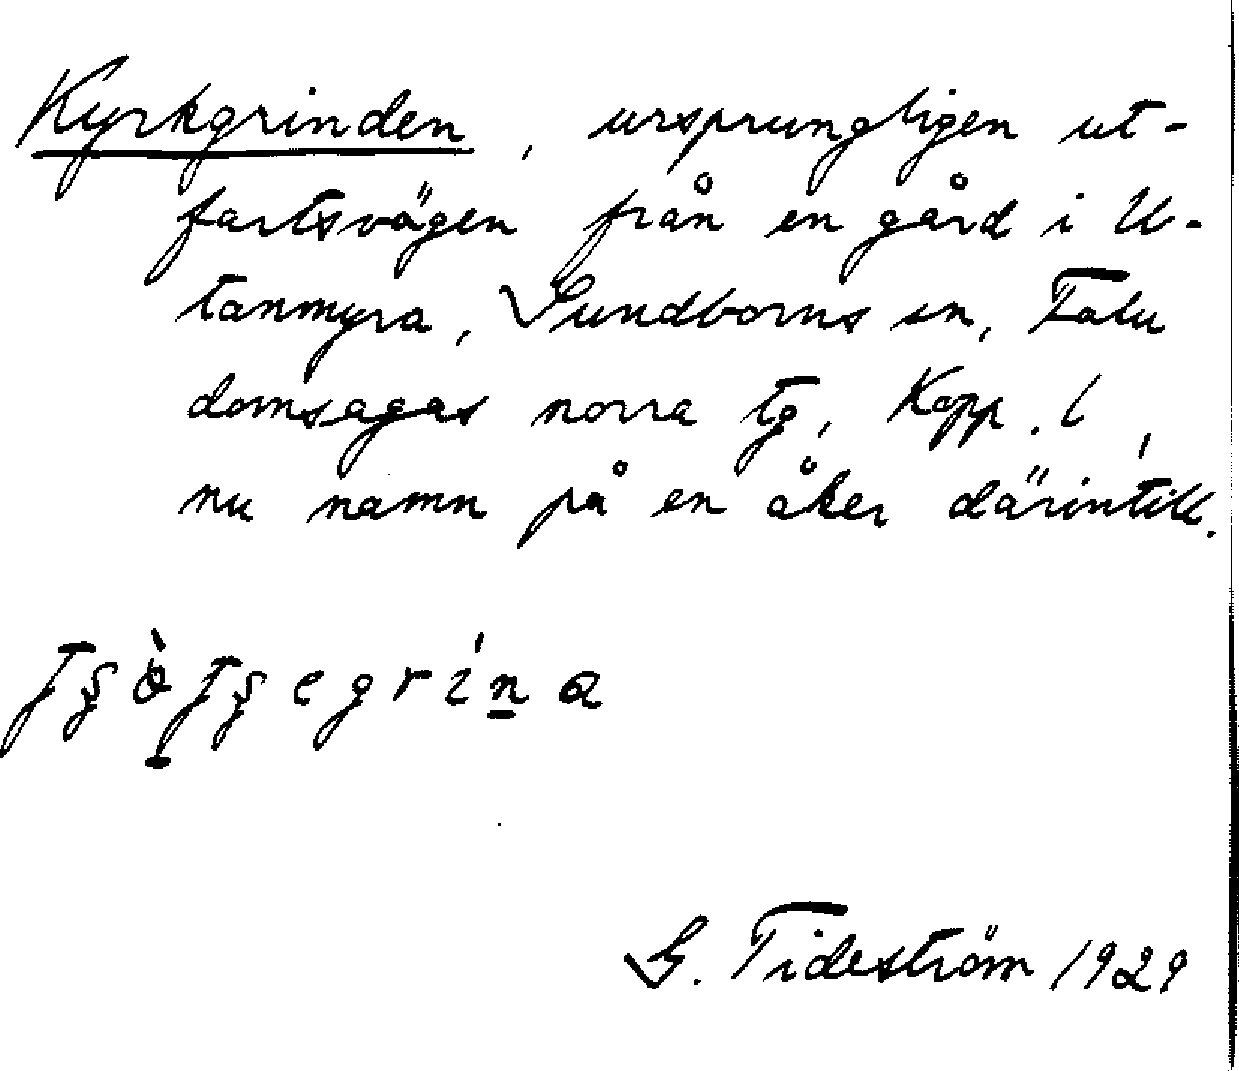 Kyrkgrinden, ursprungligen ut-
fartsvägen från en gård i U-
tanmyra, Sundborns sn, Falu
domsagas norra tg, Kopp. l,
nu namn på en åker därintill.
G. Tideström 1929